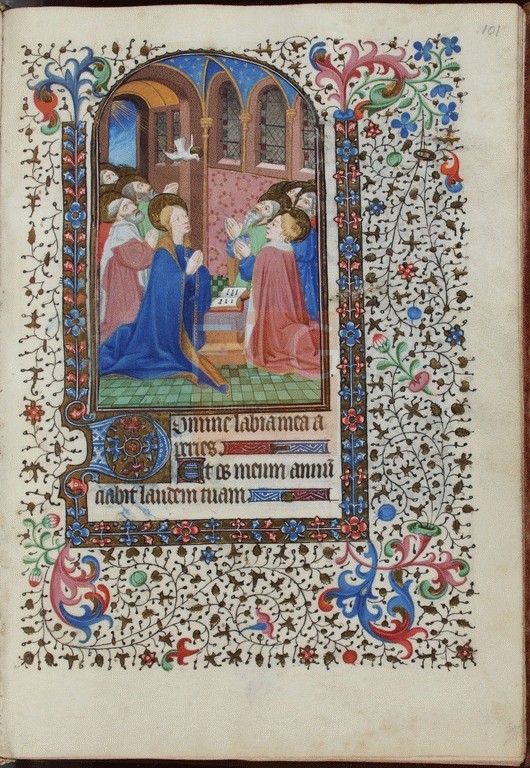 101
Domine labia mea a
peries
Et os meum annū
ciabit laudem tuam